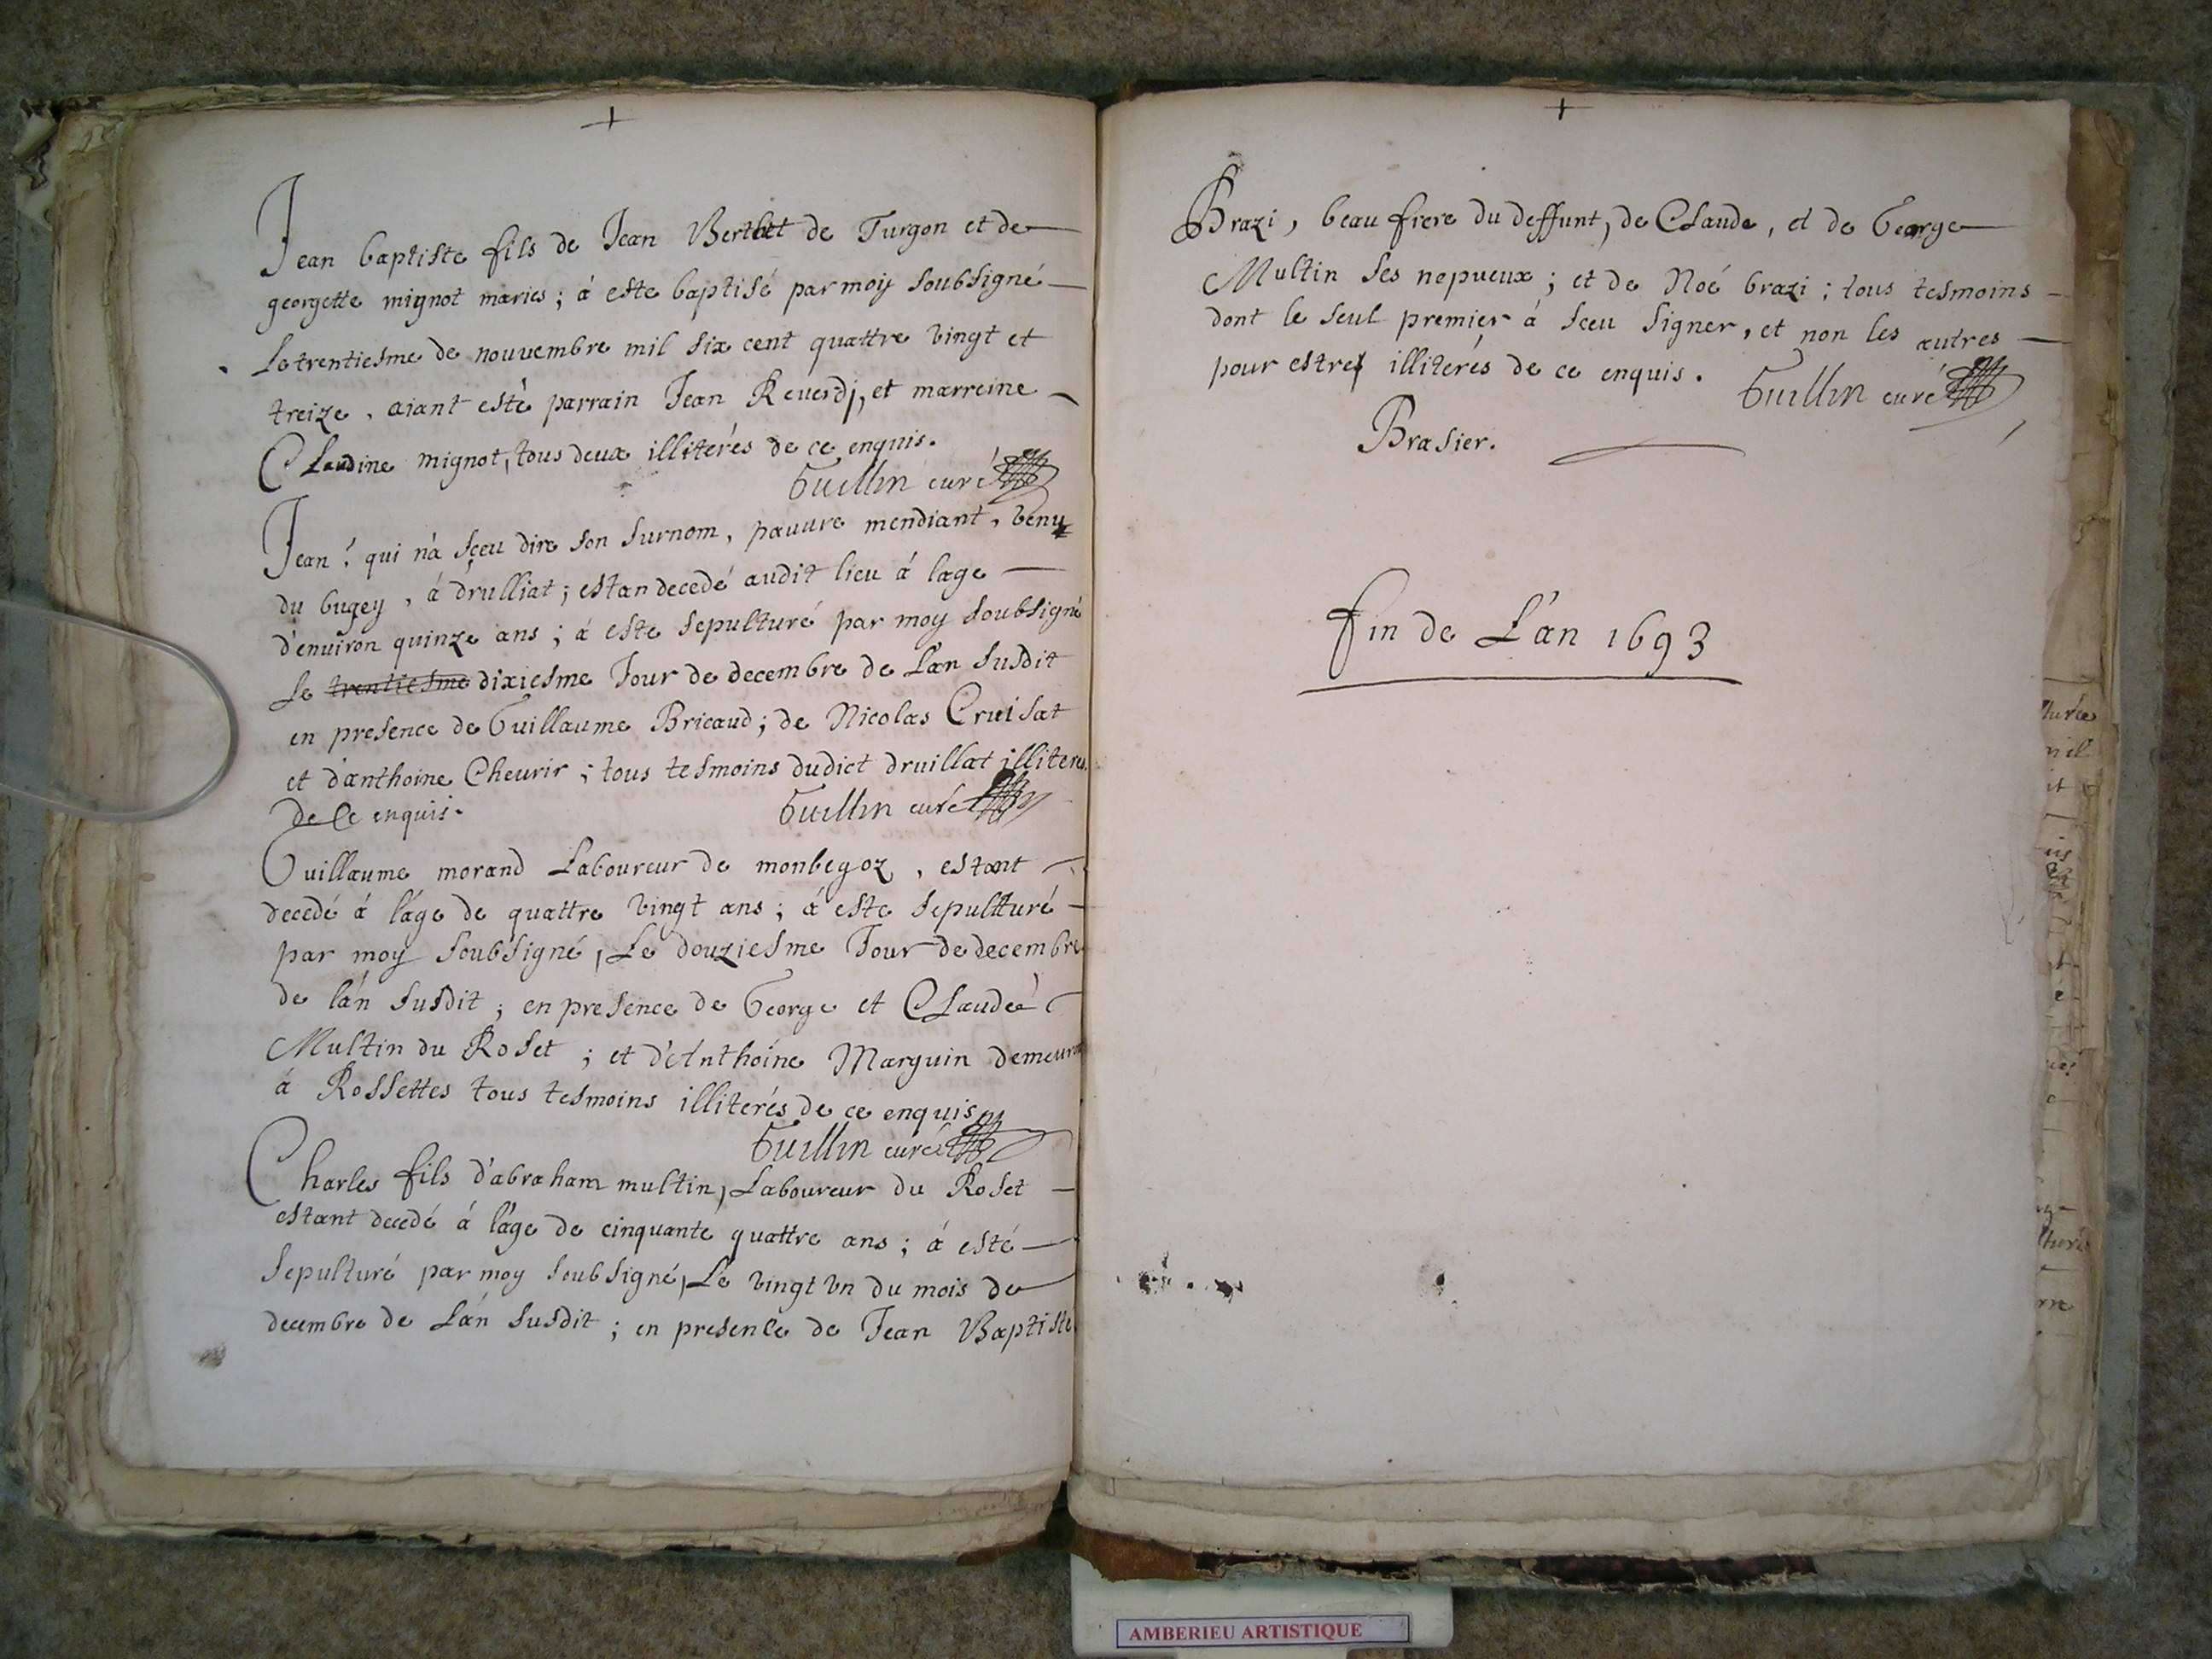 Jean baptiste fils de Jean Berthet de Turgon et de
georgette mignot maries ; á este baptisé par moy soubsigné
Le trentiesme de nouvembre mil six cent quattre vingt et
treize , aiant esté parrain Jean Reverdj, et marreine
Claudine mignot, tous deux illiterés de ce enquis.
Guillin curé
Jean ! qui n'a sçeu dire son surnom , pauvre mendiant , venu
du bugey , á drulliat ; estan decedé audit lieu á lage
d'environ quinze ans ; á este sepulturé par moy soubsigné
Le trentiesme dixiesme Jour de decembre de L'an susdit
en presence de Guillaume Bricaud ; de Nicolas Cruisat
et d'anthoine Chevrir ; tous tesmoins dudict druillat illiteres
de Ce enquis.
Guillin curé
Guillaume morand Laboureur de monbegoz , estant
decedé á l'áge de quattre vingt ans ; á este sepulturé
par moy soubsigné, Le douziesme Jour de decembre
de l'án susdit ; en presence de George et Claude
Multin du Roset ; et d'Anthoine Marguin demeurant
á Rossettes tous tesmoins illiterés de ce enquis
Guillin curé
Charles fils d'abraham multin, Laboureur du Roset
estant decedé á l'áge de cinquante quattre ans ; á esté
sepulturé par moy soubsigné, Le vingt vn du mois de
decembre de L'án susdit ; en presence de Jean Baptiste
Brazi , beau frere du deffunt, de Claude , et de George
Multin ses nepueux ; et de Noé brazi ; tous tesmoins
dont le seul premier á sceu signer, et non les autres
pour estres illiterés de ce enquis .
Guillin curé
Brasier.
fin de L'án 1693
AMBERIEU ARTISTIQUE